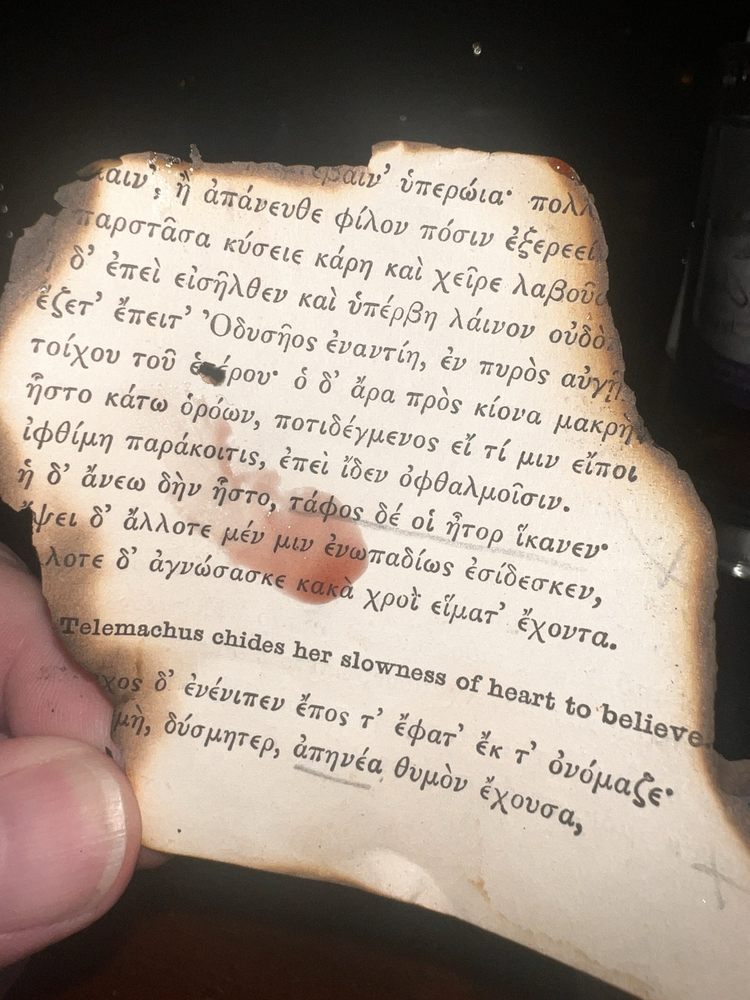 βαιν' ὑπερώια· πολλ
ἢ ἀπάνευθε φίλον πόσιν ἐξερεεί
παρστᾶσα κύσειε κάρη καὶ χεῖρε λαβοῦσ
δ' ἐπεὶ εἰσῆλθεν καὶ ὑπέρβη λάινον οὐδὸ
ἕζετ' ἔπειτ' Ὀδυσῆος ἐναντίη, ἐν πυρὸς αὐγῇ
τοίχου τοῦ ἑ ρου· ὁ δ' ἄρα πρὸς κίονα μακρὴ
ἧστο κάτω ὁρόων, ποτιδέγμενος εἴ τί μιν εἴποι
ἰφθίμη παράκοιτις, ἐπεὶ ἴδεν ὀφθαλμοῖσιν.
ἡ δ' ἄνεω δὴν ἧστο, τάφος δέ οἱ ἦτορ ἵκανεν·
ὄψει δ' ἄλλοτε μέν μιν ἐνωπαδίως ἐσίδεσκεν,
λοτε δ' ἀγνώσασκε κακὰ χροῒ εἵματ' ἔχοντα.
Telemachus chides her slowness of heart to believe.
χος δ' ἐνένιπεν ἔπος τ' ἔφατ' ἔκ τ' ὀνόμαζε·
μὴ, δύσμητερ, ἀπηνέα θυμὸν ἔχουσα,